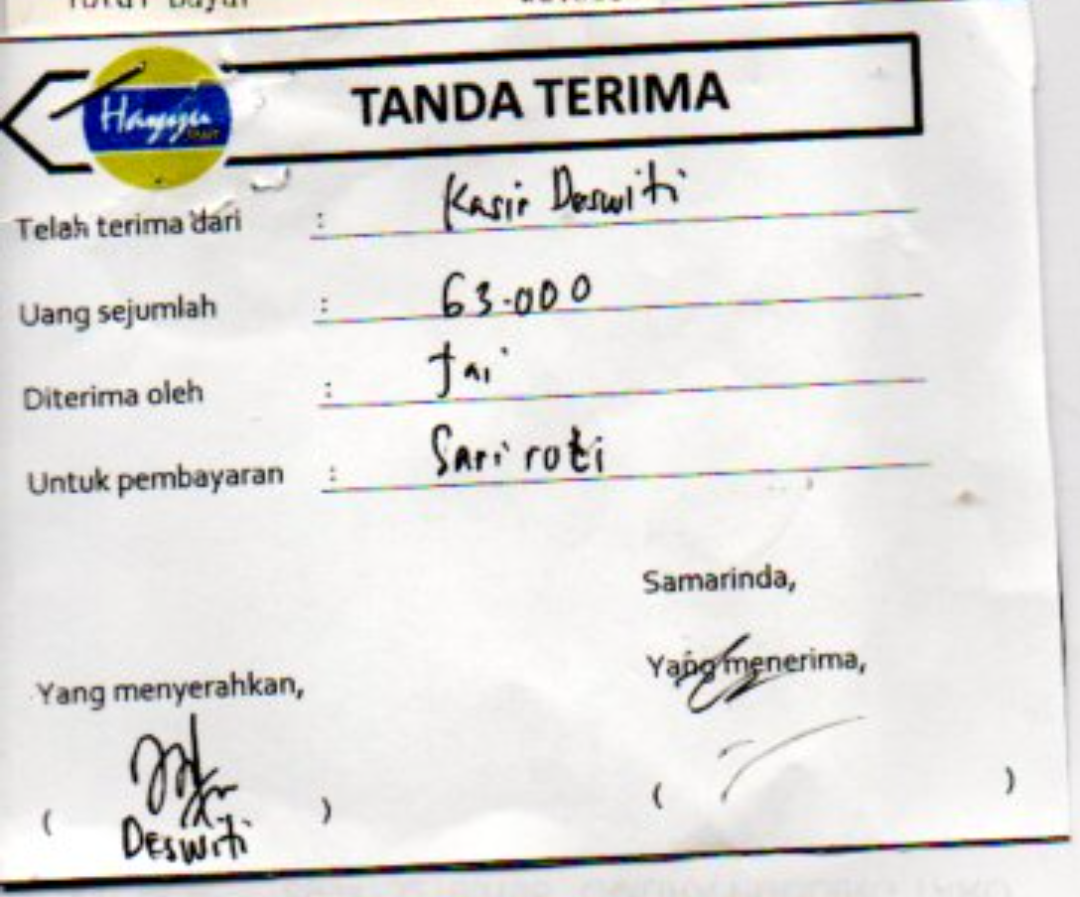 Total Bayar
Hayyu
MART
TANDA TERIMA
Telah terima dari : Kasir Deswiti
Uang sejumlah : 63.000
Diterima oleh : Jai
Untuk pembayaran : Sari roti
Samarinda,
Yang menyerahkan, Yang menerima,
( DESWiti ) ( )